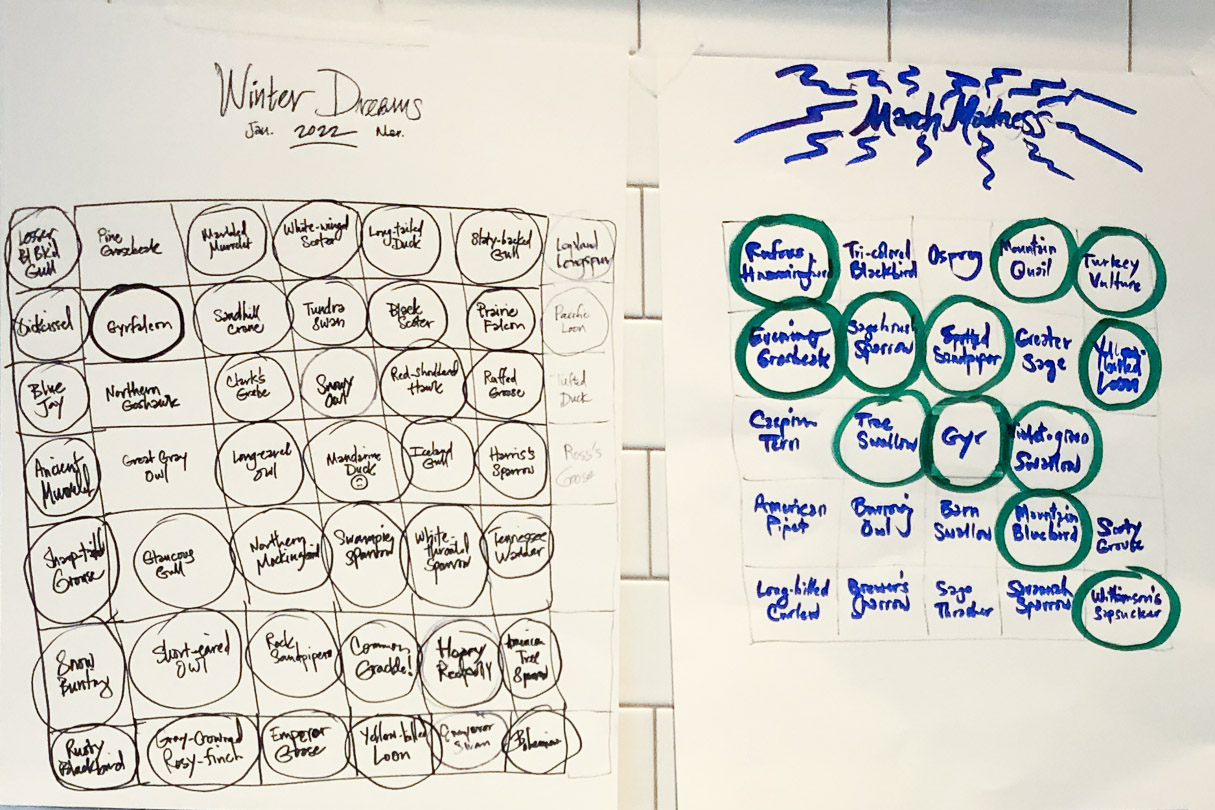 Winter Dreams
Jan. 2022 Mar.
Lesser
Bl Bk'd
Gull
Pine
Grosbeak
Marbled
Murrelet
White-winged
Scoter
Long-tailed
Duck
Slaty-backed
Gull
Lapland
Longspur
Dickcissel
Gyrfalcon
Sandhill
Crane
Tundra
Swan
Black
Scoter
Prairie
Falcon
Pacific
Loon
Blue
Jay
Northern
Goshawk
Clark's
Grebe
Snowy
Owl
Red-shouldered
Hawk
Ruffed
Grouse
Tufted
Duck
Ancient
Murrelet
Great Gray
Owl
Long-eared
Owl
Mandarin
Duck
Iceland
Gull
Harris's
Sparrow
Ross's
Goose
Sharp-tailed
Grouse
Glaucous
Gull
Northern
Mockingbird
Swamp
Sparrow
White-
throat'd
Sparrow
Tennessee
Warbler
Snow
Bunting
Short-eared
Owl
Rock
Sandpiper
Common
Grackle!
Hoary
Redpoll
American
Tree
Sparrow
Rusty
Blackbird
Gray-Crowned
Rosy-finch
Emperor
Goose
Yellow-billed
Loon
Swan
Bohemian
March Madness
Rufous
Hummingbird
Tri-colored
Blackbird
Osprey
Mountain
Quail
Turkey
Vulture
Evening
Grosbeak
Sagebrush
Sparrow
Spotted
Sandpiper
Greater
Sage
Yellow-
billed
Loon
Caspian
Tern
Tree
Swallow
Gyr
Violet-green
Swallow
American
Pipit
Burrowing
Owl
Barn
Swallow
Mountain
Bluebird
Sooty
Grouse
Long-billed
Curlew
Brewer's
Sparrow
Sage
Thrasher
Savannah
Sparrow
Williamson's
Sapsucker